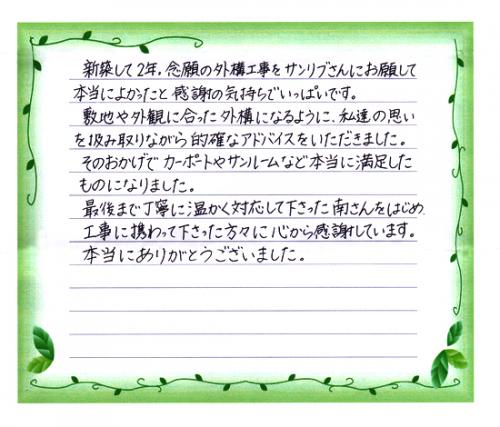 新築して2年。念願の外構工事をサンリブさんにお願して
本当によかったと感謝の気持ちでいっぱいです。
敷地や外観に合った外構になるように、私達の思い
を扱み取りながら的確なアドバイスをいただきました。
そのおかげでカーポートやサンルームなど本当に満足した
ものになりました。
最後まで丁寧に温かく対応して下さった南さんをはじめ、
工事に携わって下さった方々に心から感謝しています。
本当にありがとうございました。